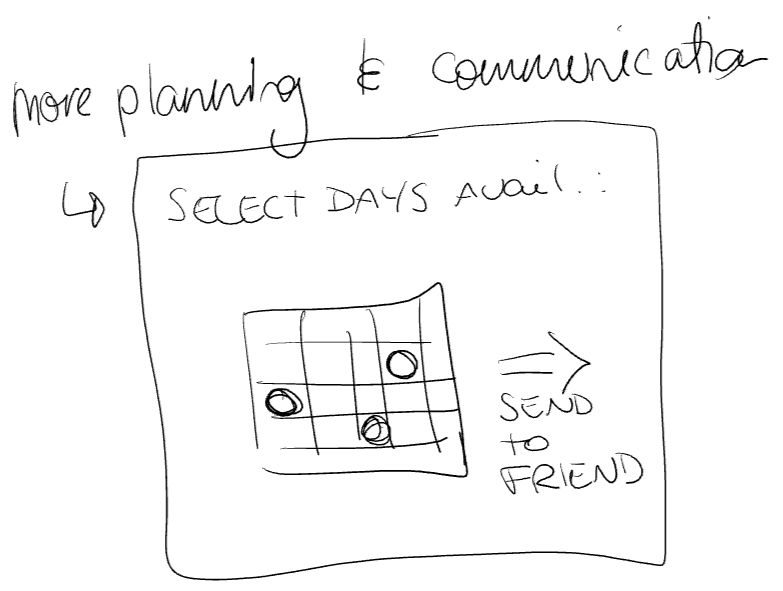 more planning & communication
SELECT DAYS AVAil.:
SEND
to
FRIEND